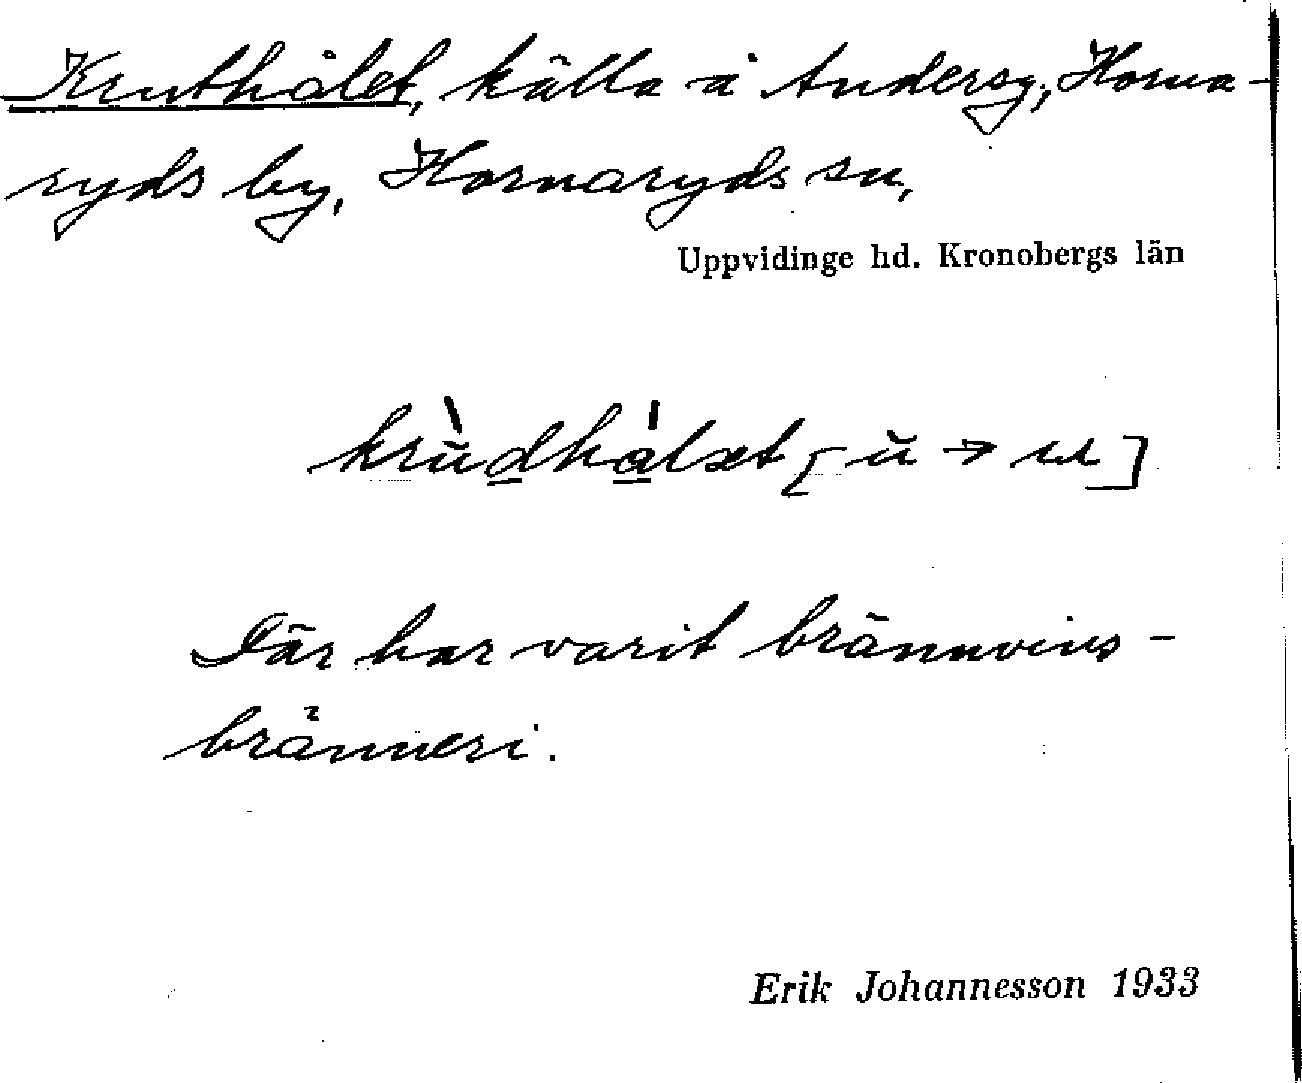 Kruthålet, källa å Andersg., Horna-
ryds by, Hornaryds sn,
Uppvidinge hd. Kronobergs län
krùdhålæt [ŭ → ω]
Där har varit brännvins-
bränneri.
Erik Johannesson 1933